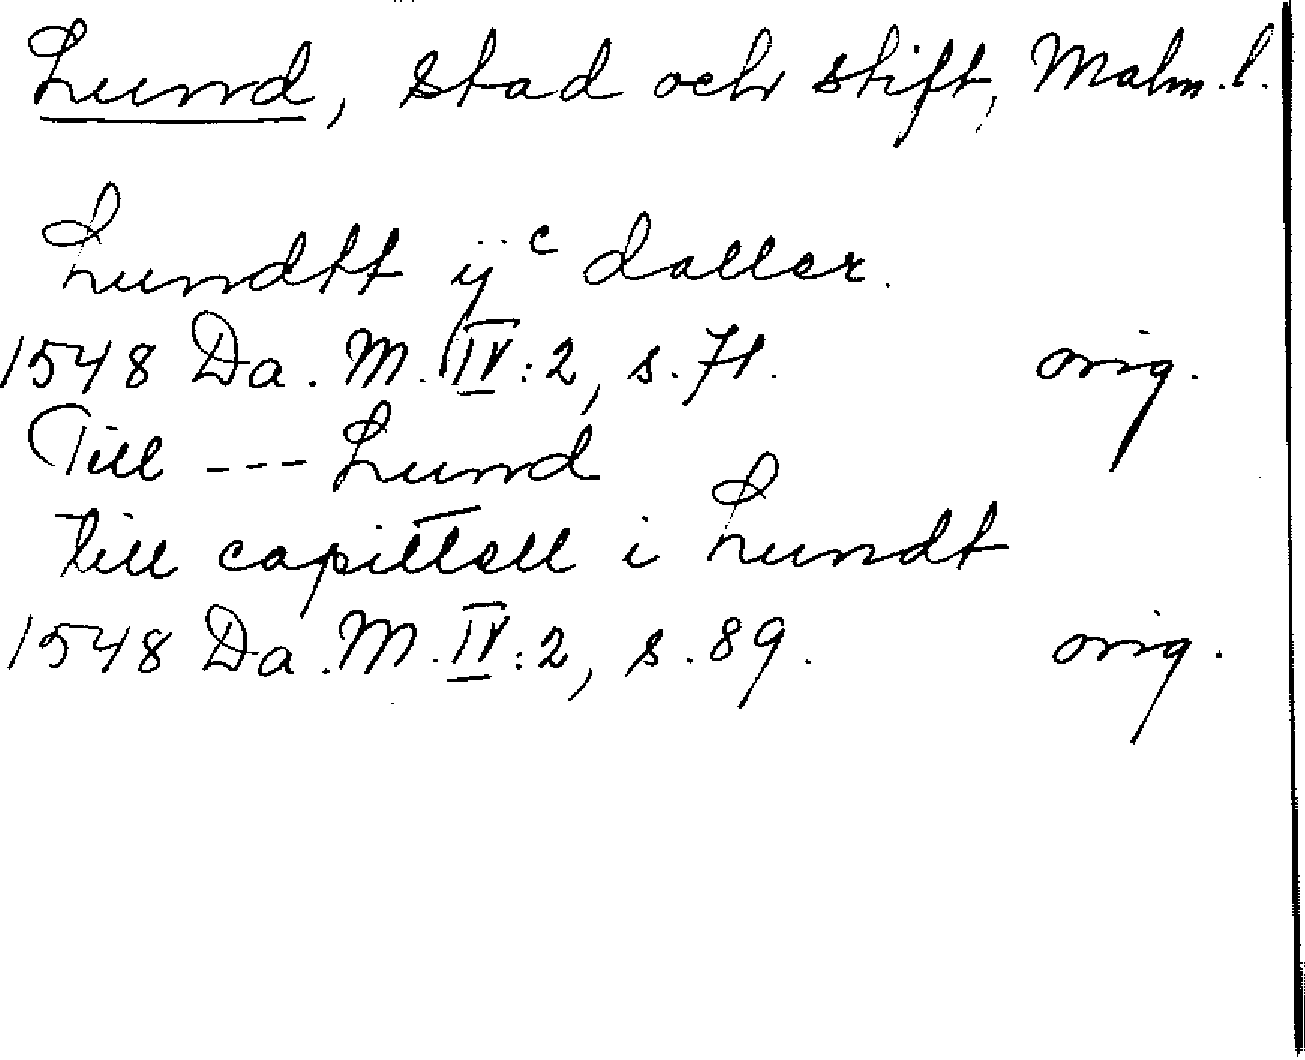 Lund, stad och stift, Malm. l.
Lundtt ij c daller.
1548 Da. M. IV:2, s. 71. orig.
Till --- Lund
till capittell i Lundt
1548 Da. M. IV:2, s. 89. orig.